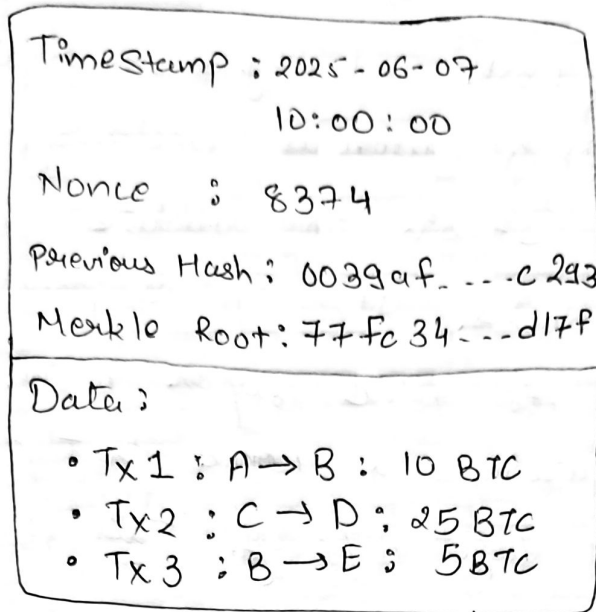 TimeStamp : 2025-06-07
10:00:00
Nonce : 8374
Previous Hash : 0039af....c293
Merkle Root : 77fc34...d17f
Data :
• Tx1 : A → B : 10 BTC
• Tx2 : C → D : 25 BTC
• Tx3 : B → E : 5BTC